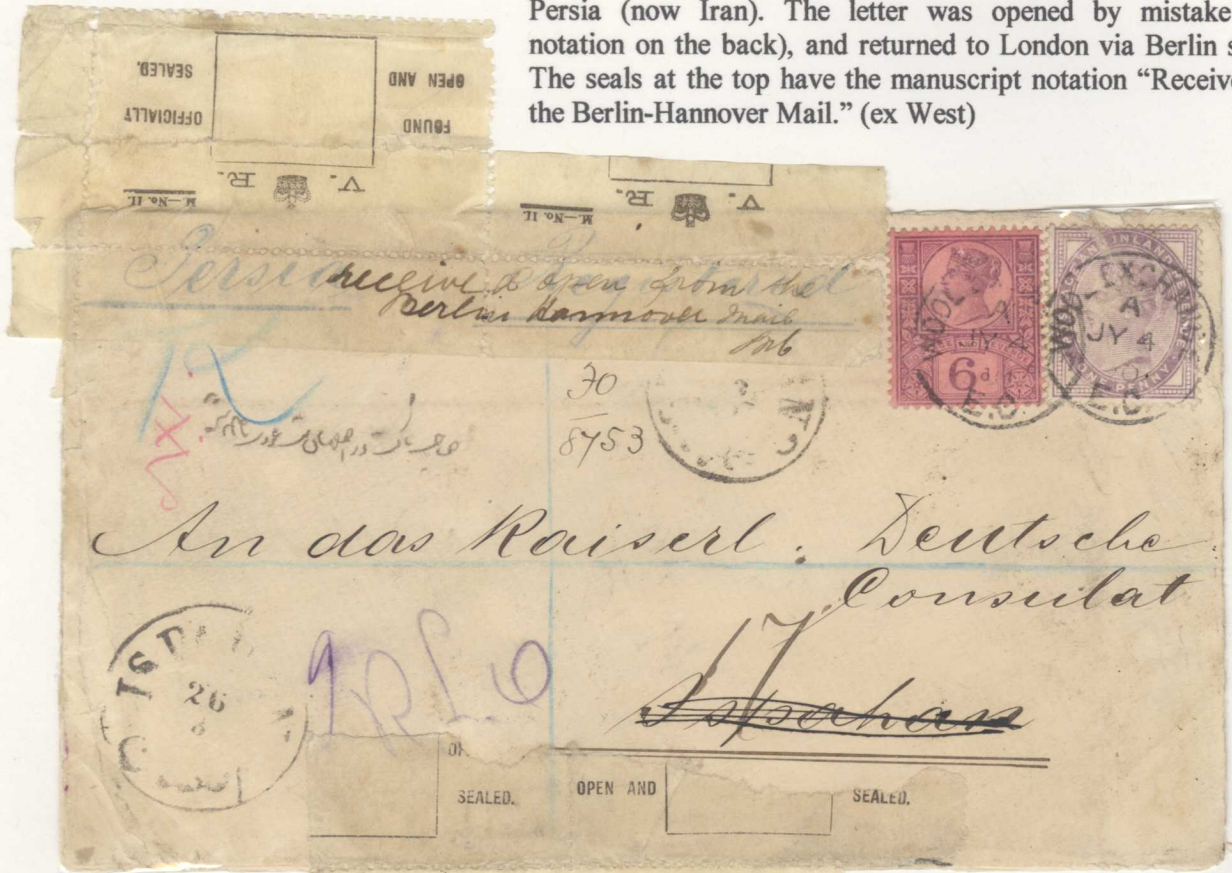 Persia (now Iran). The letter was opened by mistake
notation on the back), and returned to London via Berlin s
The seals at the top have the manuscript notation “Receive
the Berlin-Hannover Mail.” (ex West)
FOUND
OPEN AND
OFFICIALLY
SEALED.
V. R.
M—No. 11.
V. R.
M—No. 11.
Persia
received open from the
Berlin Hannover Mail
6d
WOOL EXCHANGE
A
JY 4
E.C.
WOOL EXCHANGE
A
JY 4
E.C.
R
30
8753
An das Kaiserl. Deutsche
Consulat
17
Ispahan
26
RLO
SEALED.
OPEN AND
SEALED.